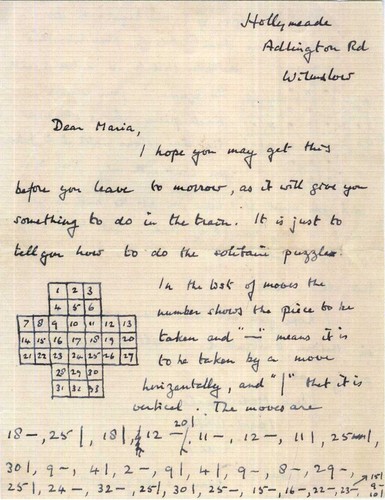 Hollymeade
Adlington Rd
Wilmslow
Dear Maria,
I hope you may get this
before you leave to morrow, as it will give you
something to do in the train. It is just to
tell you how to do the solitaire puzzle.
In the list of moves the
number shows the piece to be
taken and "—" means it is
to be taken by a move
horizontally, and "|" that it is
vertical. The moves are
1 2 3
4 5 6
7 8 9 10 11 12 13
14 15 16 17 18 19 20
21 22 23 24 25 26 27
28 29 30
31 32 33
18 –, 25 |, 18 |, 12 –, 20 |, 11 –, 12 –, 11 |, 25 –,
30 |, 9 –, 4 |, 2 –, 9 |, 4 |, 9 –, 8 –, 29 –,
25 |, 24 –, 32 –, 25 |, 30 |, 25 –, 15 –, 16 –, 22 –, 23 –, 15 |
9 –